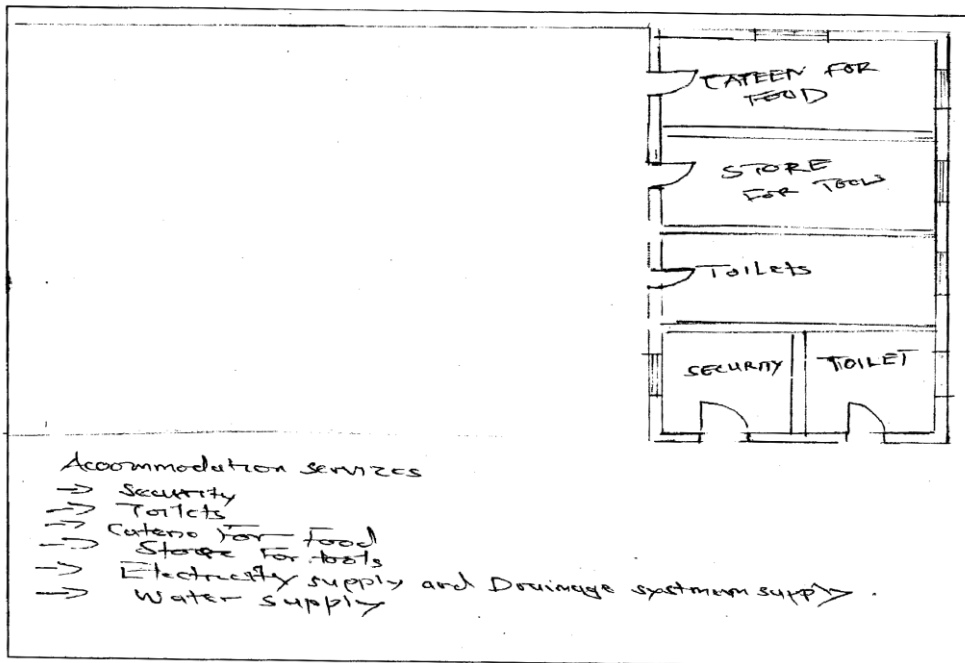 CATEEN FOR
FOOD
STORE
FOR TOOLS
TOILETS
SECURITY
TOILET
Acoommodation services
→ Security
→ Toilets
→ Cateno For Food
→ Store For tools
→ Electricity supply and Drainage systmem supply.
→ Water supply